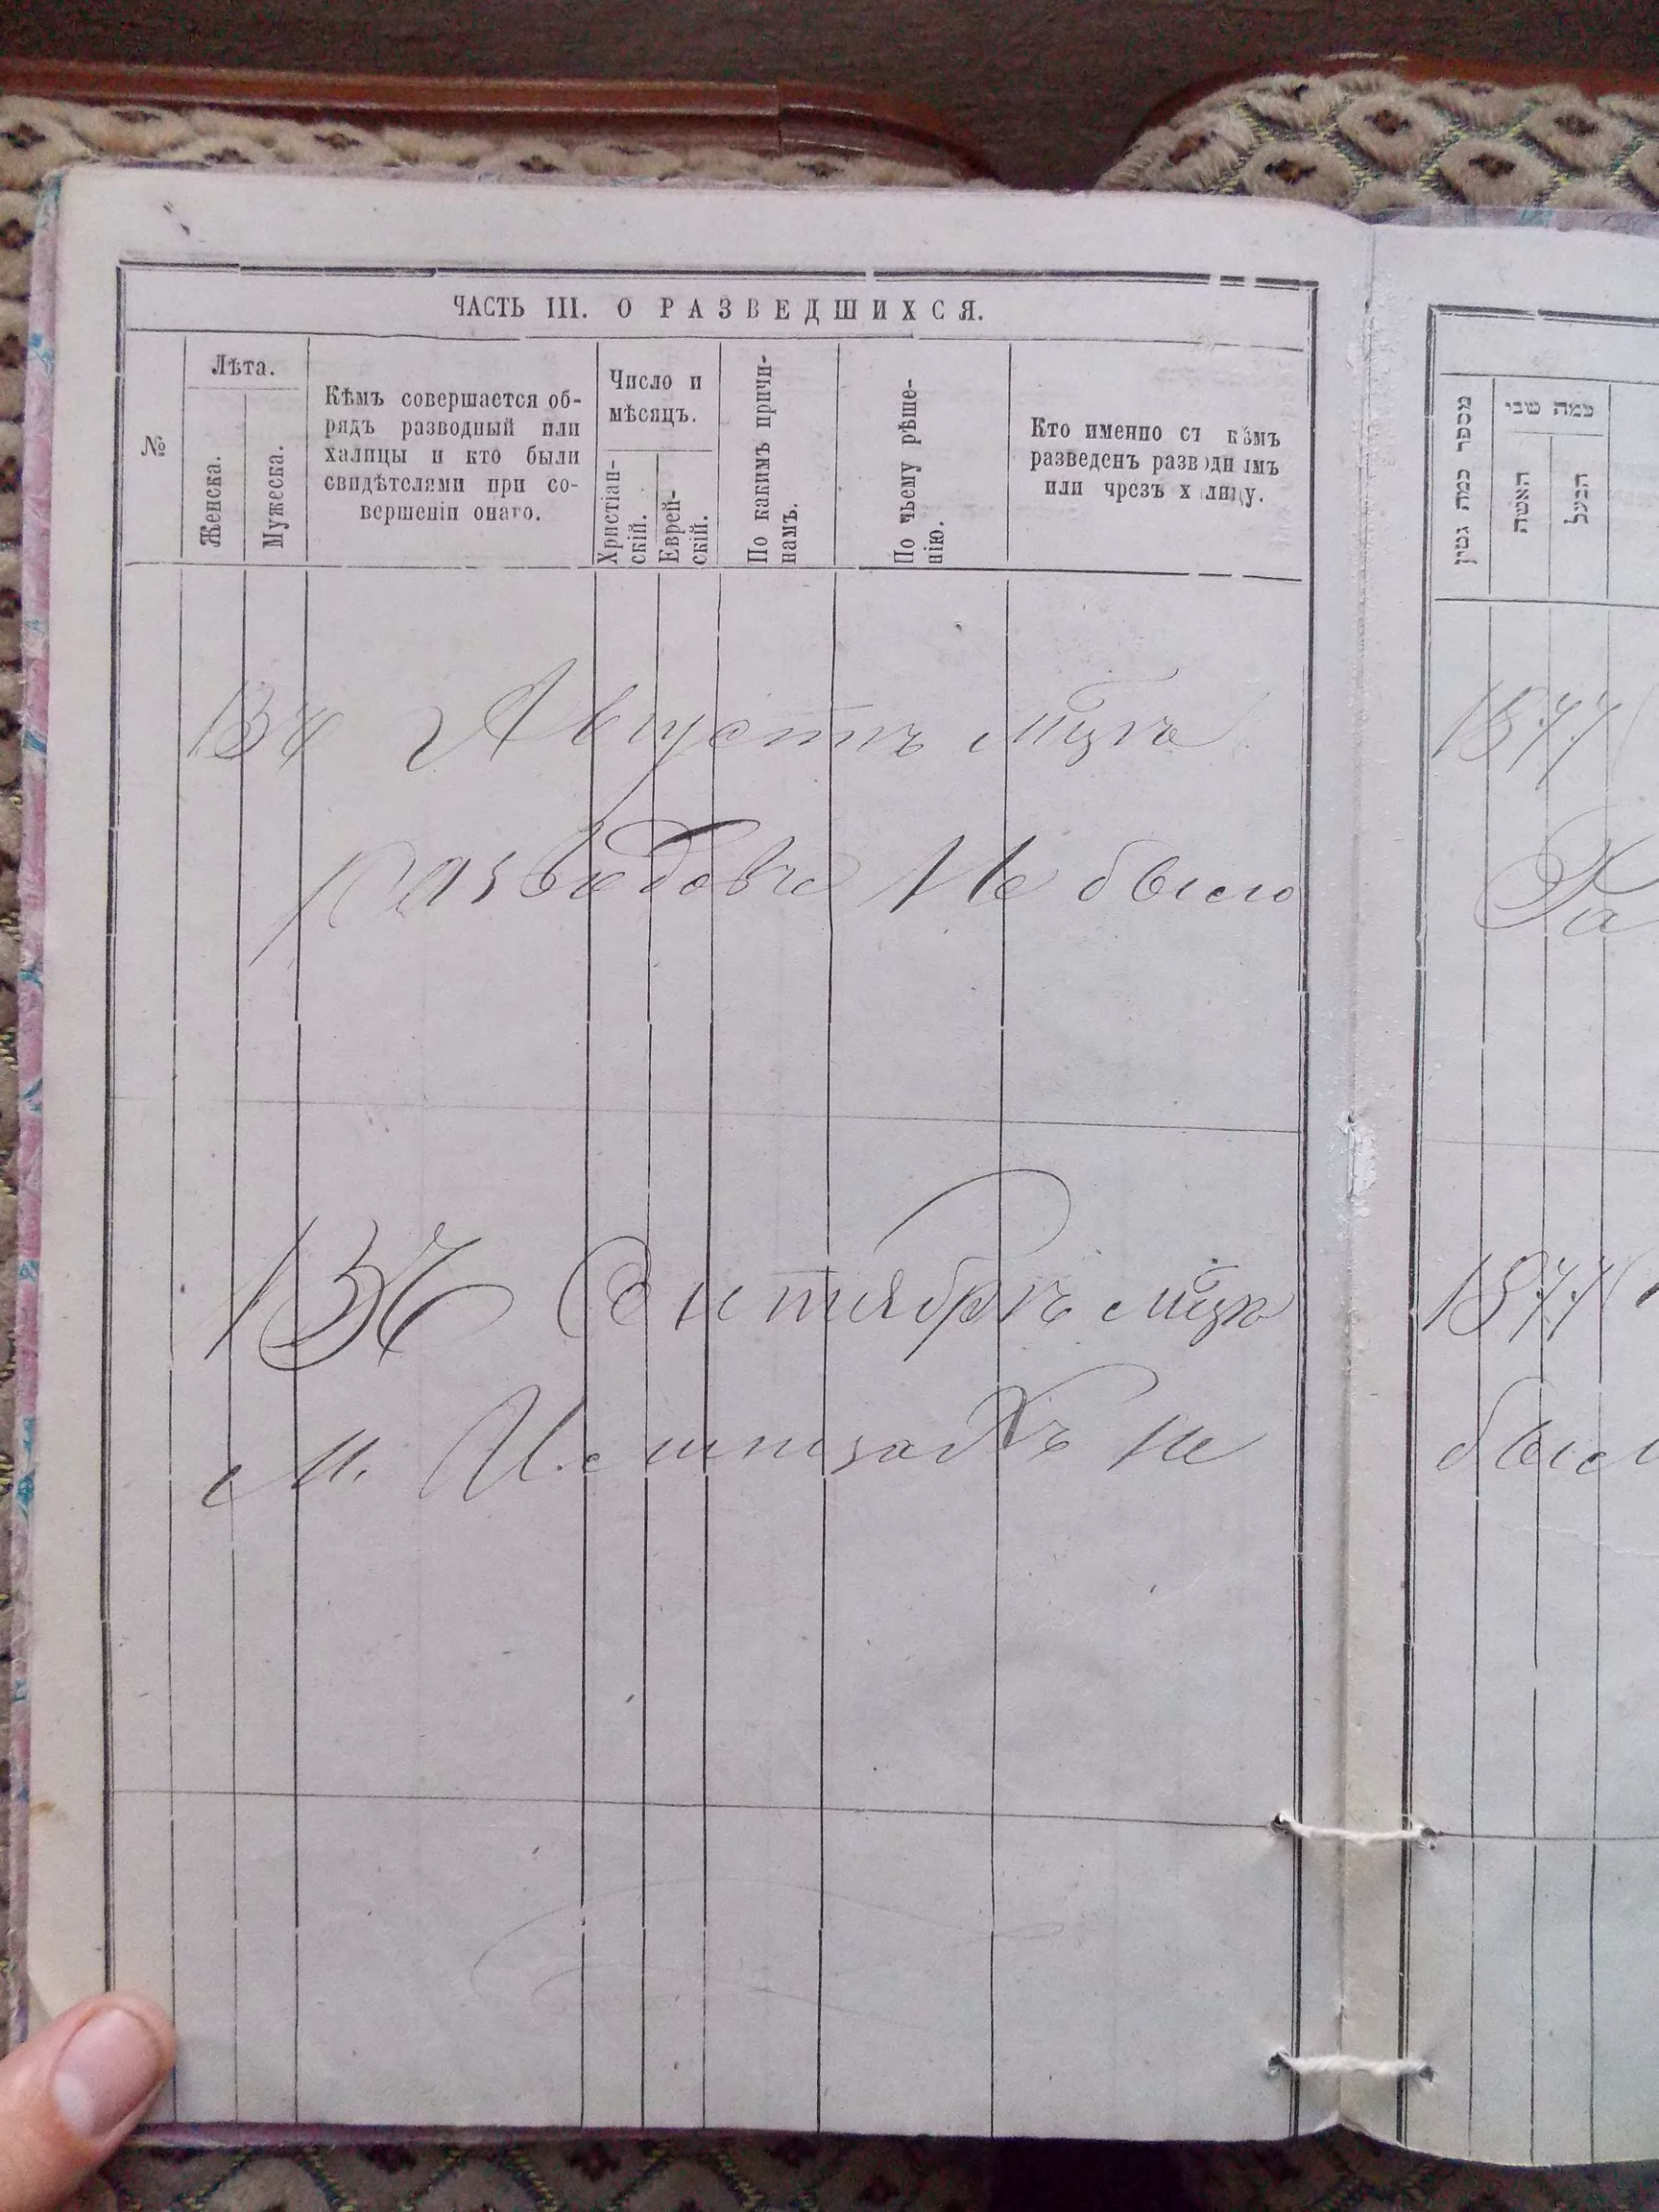 ЧАСТЬ III. О РАЗВЕДШИХСЯ.
№
Лѣта.
Женска.
Мужеска.
Кѣмъ совершается об-
рядъ разводный или
халицы и кто были
свидѣтелями при со-
вершеніи онаго.
Число и
мѣсяцъ.
Христіан-
скій.
Еврей-
скій.
По какимъ причи-
намъ.
По чьему рѣше-
нію.
Кто именно съ кѣмъ
разведенъ разводнымъ
или чрезъ халицу.
Въ Августѣ мѣцѣ
разводовъ не было
Въ Сентябрѣ мѣцѣ
не
מספר כמה גטין
כמה שני
האשה
הבעל
1877
Ра
1877
был